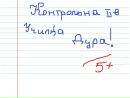 Контрольна ІІв
Училка
Дура!
5+